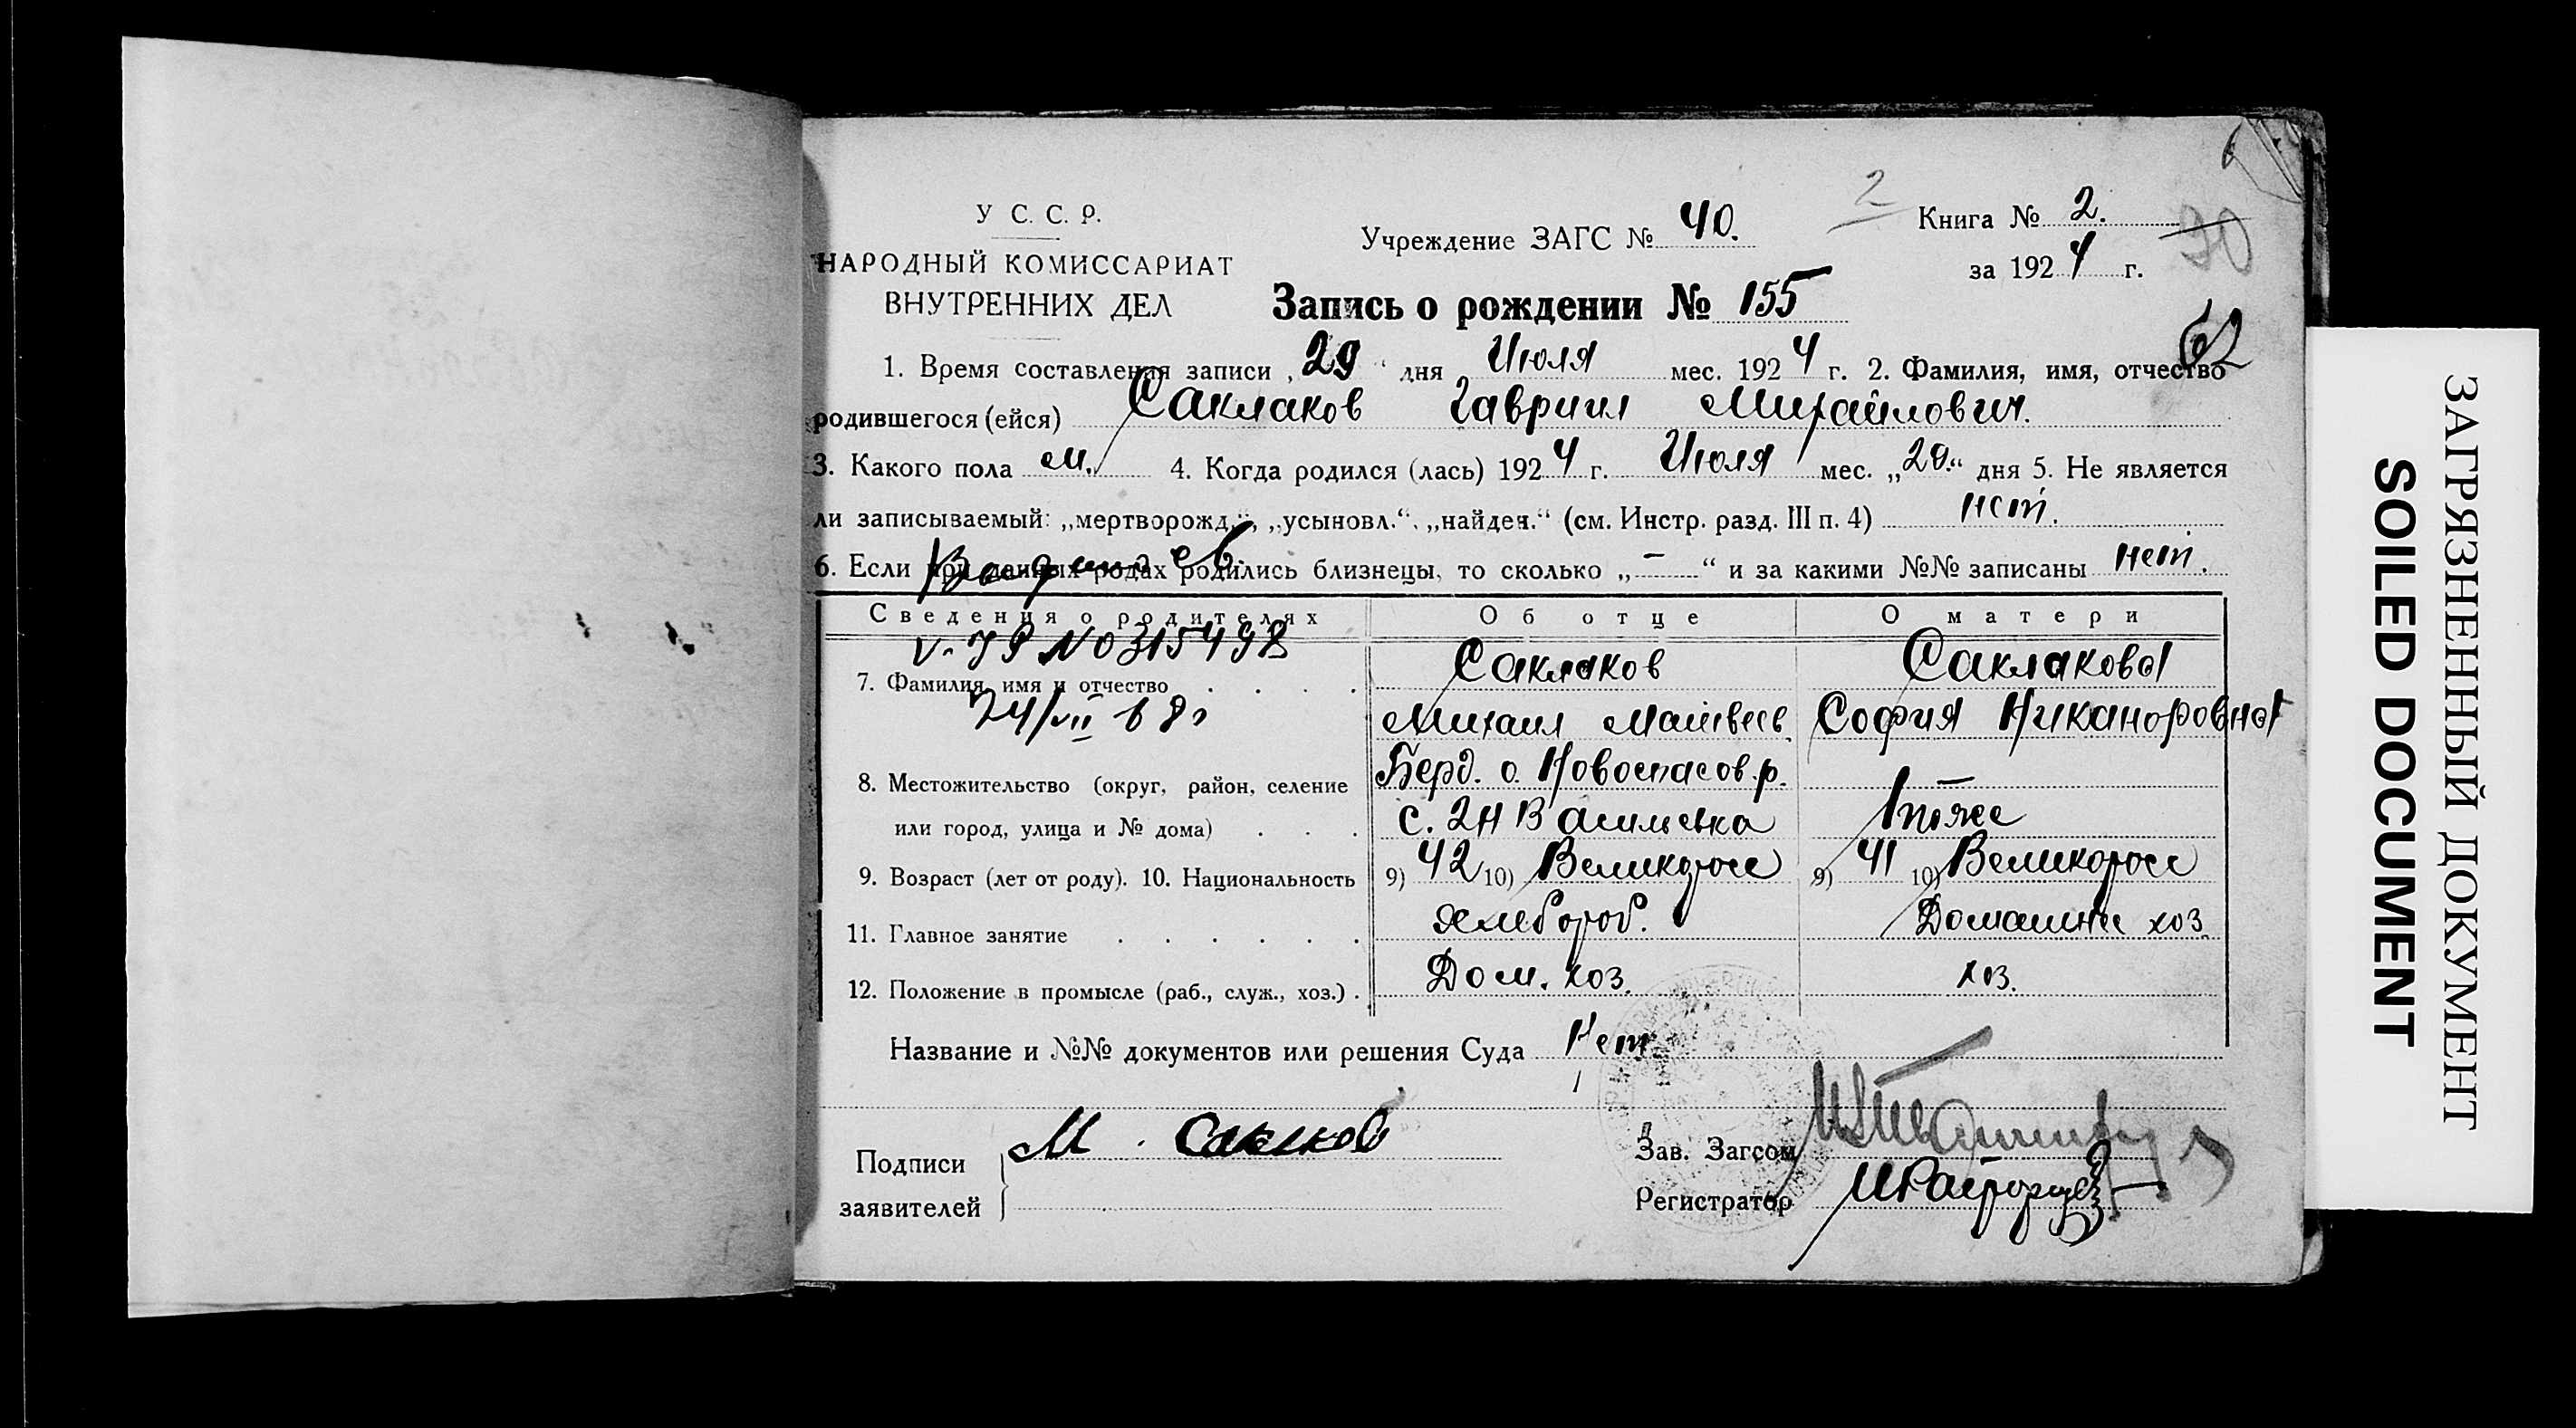 У С. С. Р.
НАРОДНЫЙ КОМИССАРИАТ
ВНУТРЕННИХ ДЕЛ
Учреждение ЗАГС № 40.
2
Книга № 2.
за 1924 г.
90
Запись о рождении № 155
62
1. Время составления записи „29“ дня Июля мес. 1924 г. 2. Фамилия, имя, отчество
родившегося (ейся) Саклаков Гавриил Михайлович.
3. Какого пола м. 4. Когда родился (лась) 1924 г. Июля мес. „20.“ дня 5. Не является
ли записываемый: „мертворожд.“, „усыновл.“, „найден.“ (см. Инстр. разд. III п. 4) нет.
6. Если при данных родах родились близнецы, то сколько „—“ и за какими №№ записаны нет.
Сведения о родителях Об отце О матери
№ 0315498
7. Фамилия, имя и отчество . . . . Саклаков Саклакова
Михаил Матвеев. София Никаноровна
8. Местожительство (округ, район, селение Берд. о. Новоспасов. р. —
или город, улица и № дома) . . . с. 2н Васильевка тоже
9. Возраст (лет от роду). 10. Национальность 9) 42 10) Великоросс 9) 41 10) Великоросс
11. Главное занятие . . . . . . Хлебороб. Домашнее хоз.
12. Положение в промысле (раб., служ., хоз.) . Дом. хоз. хоз.
Название и №№ документов или решения Суда Нет
Подписи
заявителей
М. Саклаков
Зав. Загсом
Регистратор
ЗАГРЯЗНЕННЫЙ ДОКУМЕНТ
SOILED DOCUMENT